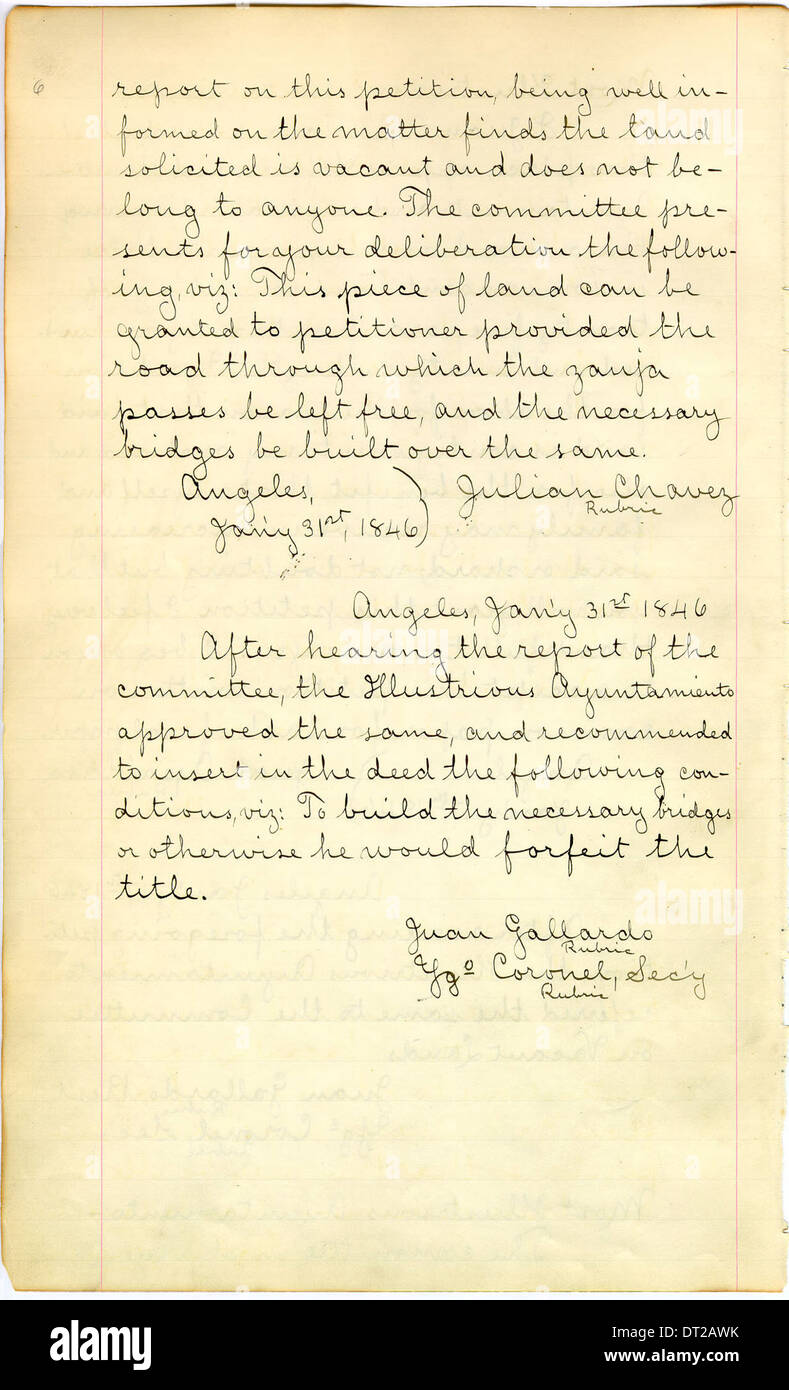 6
report on this petition, being well in-
formed on the matter finds the land
solicited is vacant and does not be-
long to anyone. The committee pre-
sents for your deliberation the follow-
ing, viz: This piece of land can be
granted to petitioner provided the
road through which the zanja
passes be left free, and the necessary
bridges be built over the same.
Angeles, ) Julian Chavez
Rubric
Jan'y 31st, 1846)
Angeles, Jan'y 31st 1846
After hearing the report of the
committee, the Illustrious Ayuntamiento
approved the same, and recommended
to insert in the deed the following con-
ditions, viz: To build the necessary bridges
or otherwise he would forfeit the
title.
Juan Gallardo
Rubric
Ygo Coronel, Sec'y
Rubric
alamy
Image ID: DT2AWK
www.alamy.com